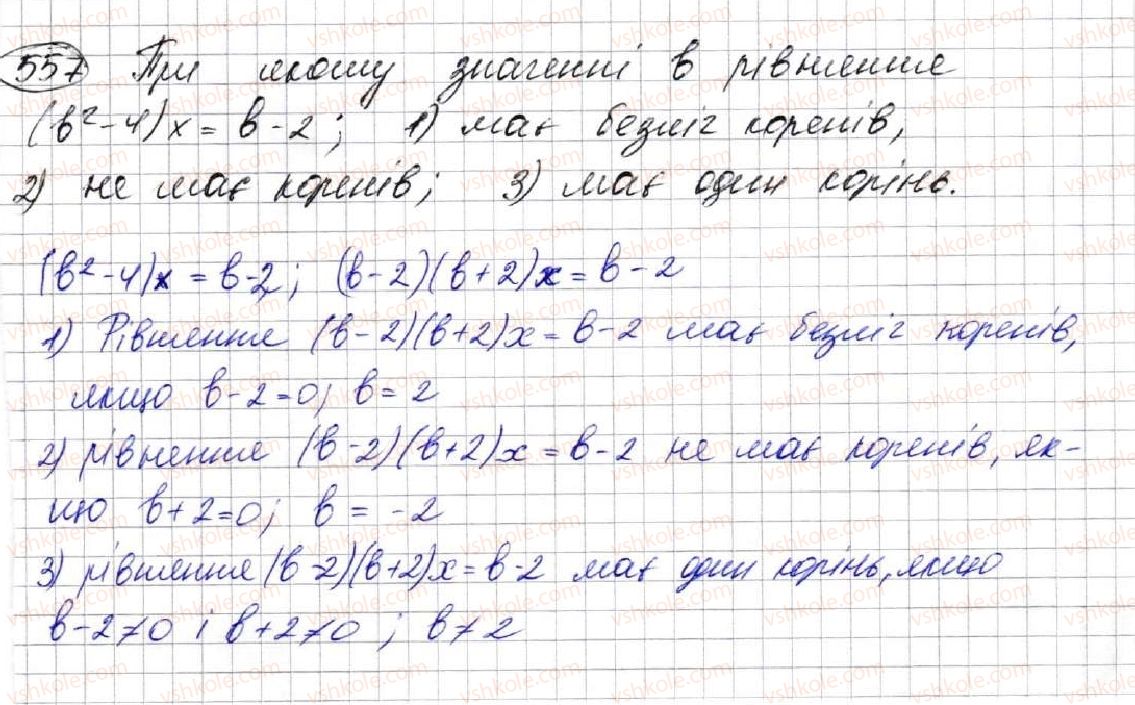 557 При якому значенні в рівняння
(в²-4)x = в-2; 1) має безліч коренів,
2) не має коренів; 3) має один корінь.
(в²-4)x = в-2; (в-2)(в+2)x = в-2
1) Рівняння (в-2)(в+2)x = в-2 має безліч коренів,
якщо в-2=0; в=2
2) рівняння (в-2)(в+2)x = в-2 не має коренів, як-
що в+2=0; в = -2
3) рівняння (в-2)(в+2)x = в-2 має один корінь, якщо
в-2≠0 і в+2≠0 ; в≠2